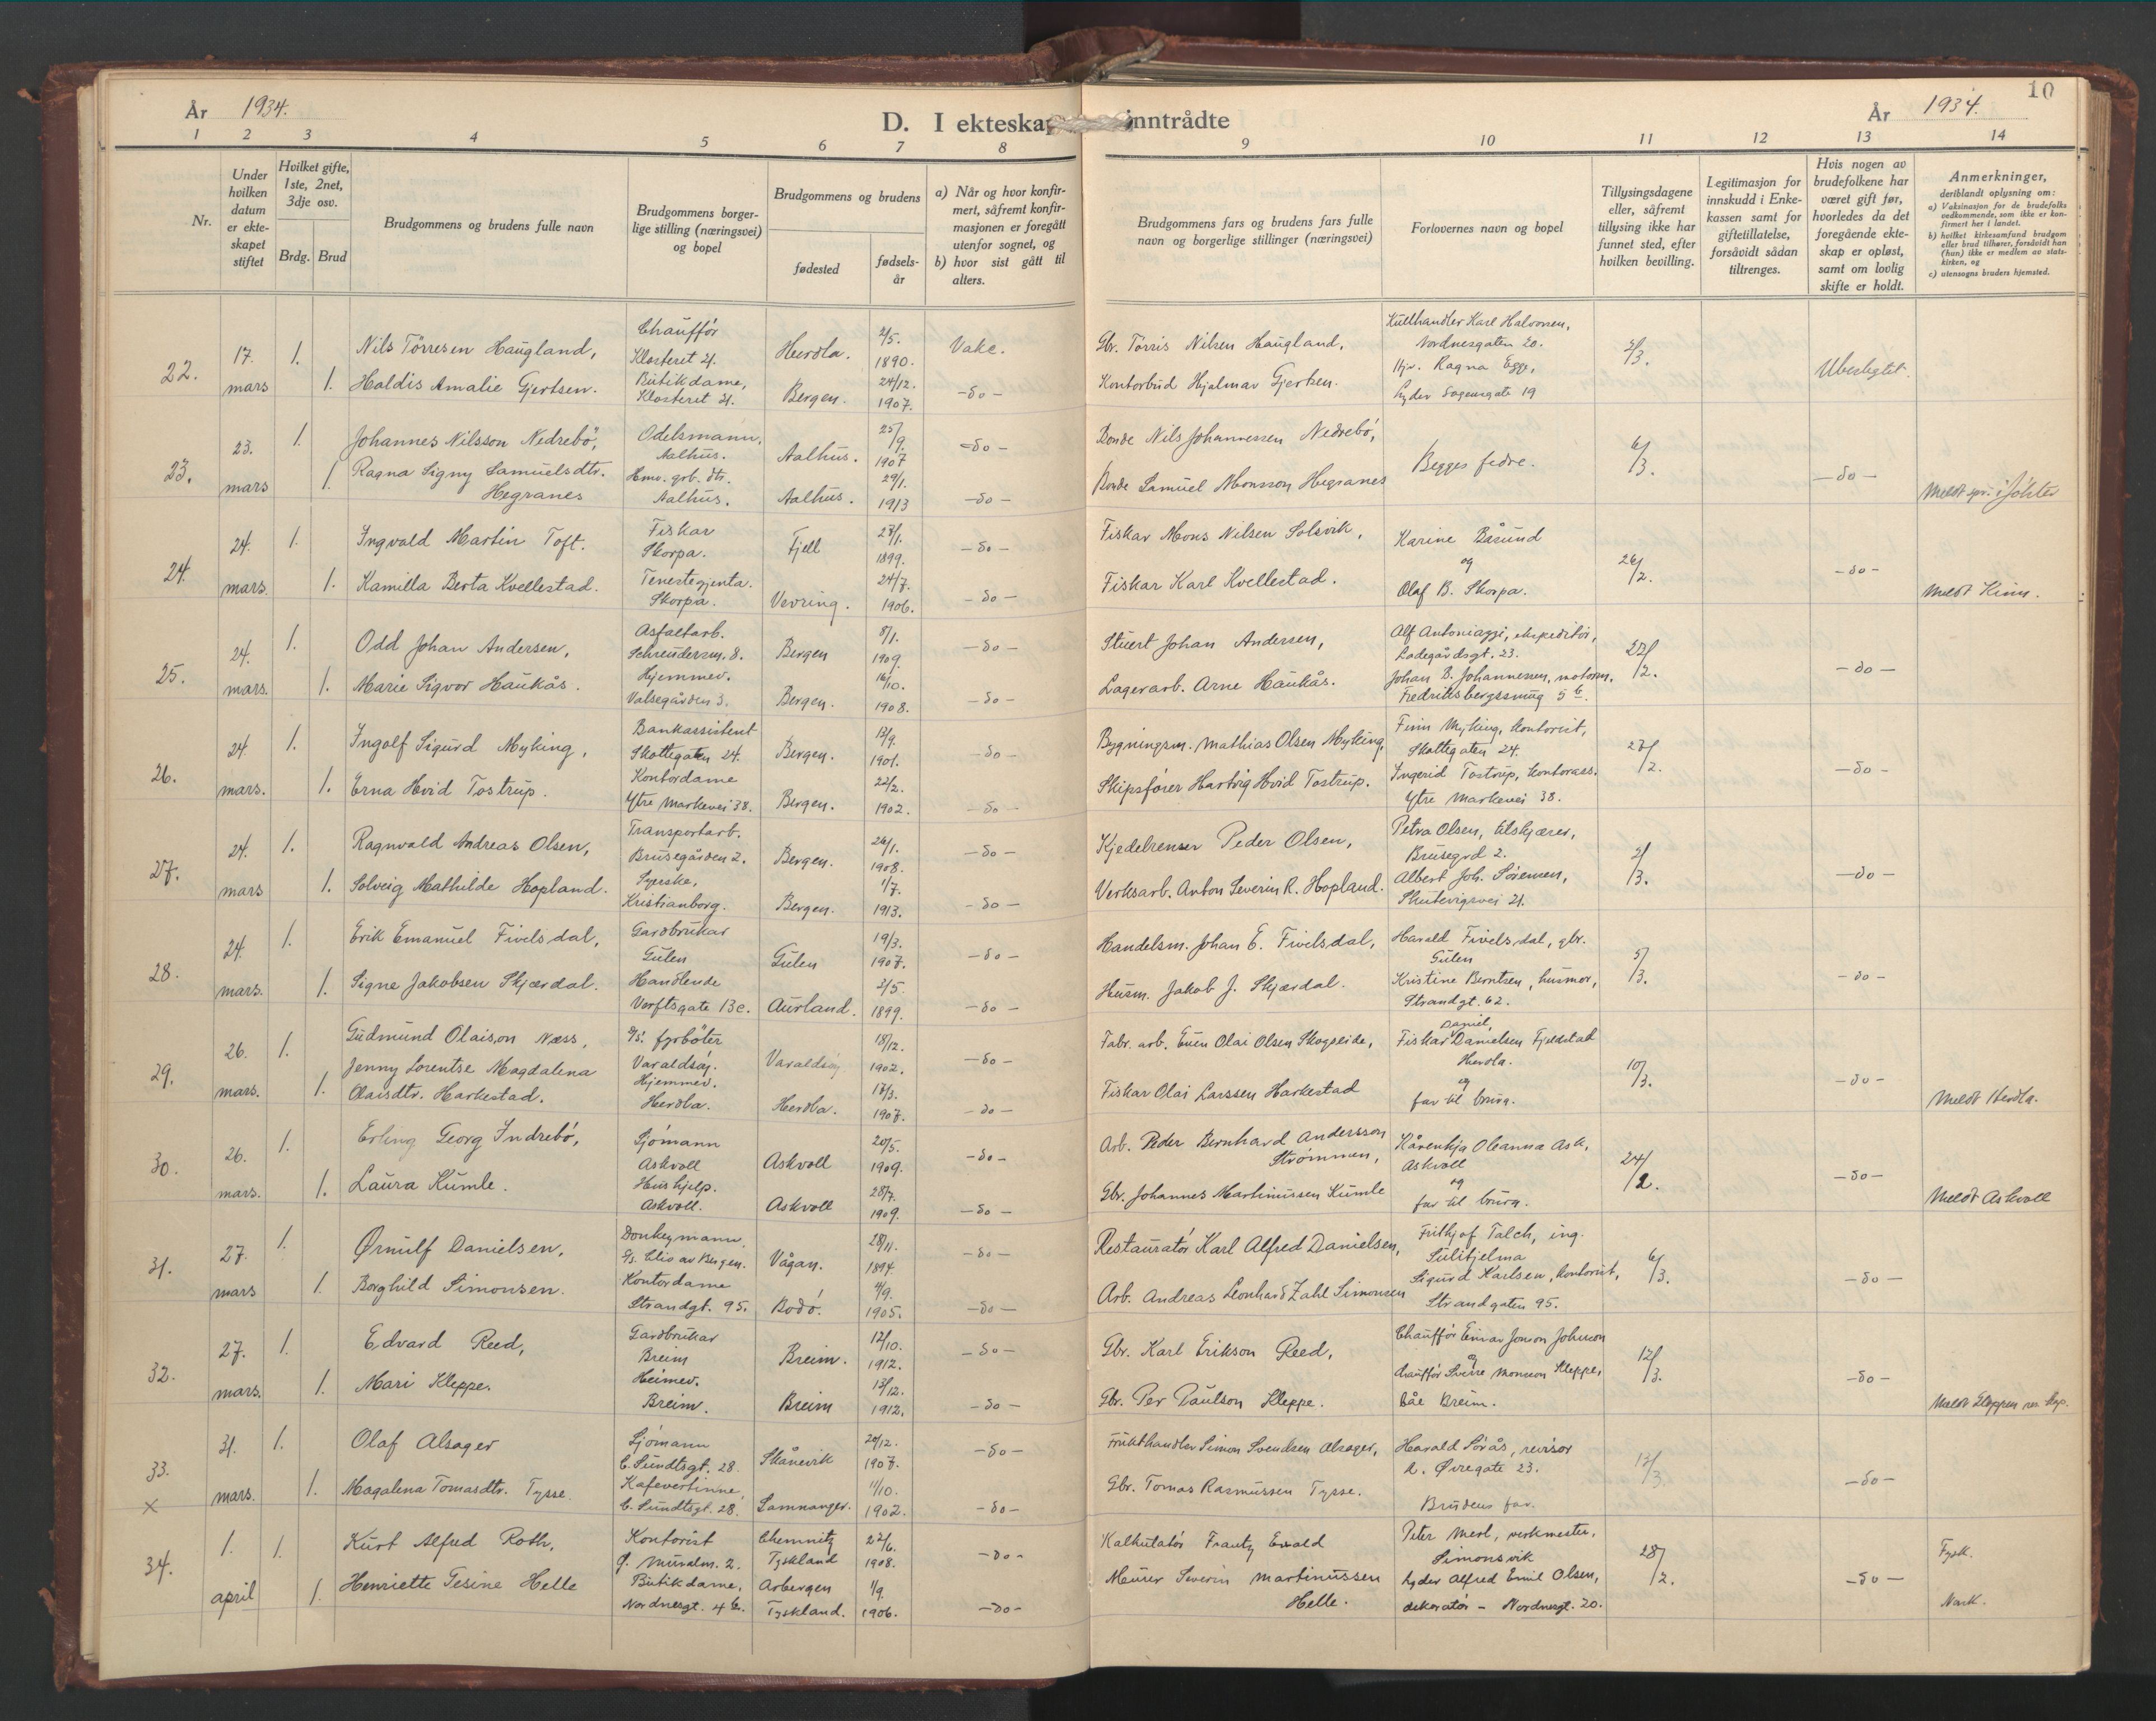 År 1934.
D. I ekteska
inntrådte
År 1934.
10
1 2 3 4 5 6 7 8 9 10 11 12 13 14
Nr.
Under hvilken datum er ekte-skapet stiftet
Hvilket gifte, 1ste, 2net, 3dje osv.
Brdg. Brud
Brudgommens og brudens fulle navn
Brudgommens borger-lige stilling (næringsvei) og bopel
Brudgommens og brudens
fødested
fødsels-år
a) Når og hvor konfir-mert, såfremt konfir-masjonen er foregått utenfor sognet, og
b) hvor sist gått til alters.
Brudgommens fars og brudens fars fulle navn og borgerlige stillinger (næringsvei)
Forlovernes navn og bopel
Tillysingsdagene eller, såfremt tillysing ikke har funnet sted, efter hvilken bevilling.
Legitimasjon for innskudd i Enke-kassen samt for giftetillatelse, forsåvidt sådan tiltrenges.
Hvis nogen av brudefolkene har været gift før, hvorledes da det foregående ekte-skap er opløst, samt om lovlig skifte er holdt.
Anmerkninger, deriblandt oplysning om:
a) Vaksinasjon for de brudefolks vedkommende, som ikke er kon-firmert her i landet.
b) hvilket kirkesamfund brudgom eller brud tilhører, forsåvidt han (hun) ikke er medlem av stats-kirken, og
c) utensogns bruders hjemsted.
22. 17. mars 1. Nils Törresen Haugland, Chaufför Klosteret 21. Herdla. 2/5. 1890. Vake. Gbr. Törris Nilsen Haugland, Kullhandler Karl Halvorsen, Nordnesgaten 20. 2/3. Ubeslegtet.
1. Haldis Amalie Gjertsen. Butikdame, Klosteret 21. Bergen. 24/12. 1907. -do- Kontorbud Hjalmar Gjertsen. Hjv. Ragna Egge, Lyder Sagensgate 19
23. 23. mars 1. Johannes Nilsson Nedrebö, Odelsmann, Aalhus. Aalhus. 25/9. 1907 -do- Bonde Nils Johannessen Nedrebö, Begges fedre. 6/3. -do-
1. Ragna Signy Samuelsdtr. Hegranes Hmv. grb. dtr. Aalhus. Aalhus. 29/1. 1913 -do- Bonde Samuel Monsson Hegranes Meldt spr. i Jölster
24. 24. mars. 1. Ingvald Martin Toft. Fiskar Skorpa. Fjell 27/1. 1899. -do- Fiskar Mons Nilsen Solsvik, Karine Båsund og 26/2. -do-
1. Kamilla Berta Kvellestad. Tenestegjenta. Skorpa. Vevring. 24/7. 1906. -do- Fiskar Karl Kvellestad. Olaf B. Skorpa. Meldt Kinn.
25. 24. mars. 1. Odd Johan Andersen, Asfaltarb. Schreudersm. 8. Bergen 8/1. 1909. -do- Stuert Johan Andersen, Alf Antoniazzi, ekspeditör, Ladegårdsgt. 23. 27/2. -do-
1. Marie Sigvor Haukås. Hjemmev. Valsegården 3. Bergen. 16/10. 1908. -do- Lagerarb. Arne Haukås. Johan B. Johannessen, motorm. Fredriksbergssmug 5 b.
26. 24. mars. 1. Ingolf Sigurd Myking, Bankassistent Skottegaten 24. Bergen. 13/9. 1901. -do- Bygningsm. Mathias Olsen Myking, Finn Myking, kontorist, Skottegaten 24. 27/2. -do-
1. Erna Hvid Tostrup. Kontordame Ytre Markevei 38. Bergen. 22/2. 1902. -do- Skipsförer Hartvig Hvid Tostrup. Ingerid Tostrup, kontorass. Ytre Markevei 38.
27. 24. mars 1. Ragnvald Andreas Olsen, Transportarb. Brusegården 2. Bergen. 26/1. 1908. -do- Kjedelrenser Peder Olsen, Petra Olsen, tilskjærer, Brusegrd 2. 2/3. -do-
1. Solveig Mathilde Hopland. Syerske, Kristianborg. Bergen. 1/7. 1913. -do- Verksarb. Anton Severin R. Hopland. Albert Joh. Sörensen, Skutevigsvei 21.
28. 24. mars. 1. Erik Emanuel Fivelsdal, Gardbrukar Gulen Gulen 19/3. 1907. -do- Handelsm. Johan E. Fivelsdal, Harald Fivelsdal, gbr. Gulen 5/3. -do-
1. Signe Jakobsen Skjærdal. Handlende Verftsgate 13c. Aurland. 2/5. 1899. -do- Husm. Jakob J. Skjærdal. Kristine Berntsen, husmor, Strandgt. 62.
29. 26. mars. 1. Gudmund Olaison Næss, D/S. fyrböter Varaldsöy. Varaldsöy 18/12. 1902. -do- Fabr. arb. Even Olai Olsen Skogseide, Fiskar Daniel, Danielsen Fjeldstad Herdla. og 10/3. -do-
1. Jenny Lorentse Magdalena Olaisdtr. Harkestad. Hjemmev. Herdla. Herdla. 17/3. 1907. -do- Fiskar Olai Larssen Harkestad far til brura. Meldt Herdla.
30. 26. mars. 1. Erling Georg Indrebö, Sjömann Askvoll Askvoll 20/5. 1909. -do- Arb. Peder Bernhard Andersson Strömmen, Kårenkja Oleanna Ask, Askvoll og 24/2. -do-
1. Laura Kumle. Hushjelp. Askvoll. Askvoll 28/7. 1909. -do- Gbr. Johannes Martinussen Kumle far til brura. Meldt Askvoll
31. 27. mars 1. Ørnulf Danielsen, Donkeymann, S/s. Clio av Bergen. Vågan. 28/11. 1894. -do- Restauratör Karl Alfred Danielsen, Frithjof Talch, ing. Sulitjelma 6/3. -do-
1. Borghild Simonsen. Kontordame Strandgt. 95. Bodö. 4/9. 1905. -do- Arb. Andreas Leonhard Zahl Simonsen Sigurd Karlsen, kontorist, Strandgaten 95.
32. 27. mars. 1. Edvard Reed, Gardbrukar Breim Breim. 12/10. 1912. -do- Gbr. Karl Erikson Reed, Chaufför Einar Jonson Johnson og 12/3. -do-
1. Mari Kleppe. Heimev. Breim. Breim 13/12. 1912. -do- Gbr. Per Paulson Kleppe. chaufför Sverre Monsson Kleppe, båe Breim. Meldt
33. × 31. mars. 1. Olaf Alsager Sjömann C. Sundtsgt. 28. Skånevik 20/12. 1907. -do- Frukthandler Simon Svendsen Alsager, Harald Sörås, revisor Øvregate 23. 13/3 -do-
1. Magdalena Tomasdtr. Tysse. Kafevertinne, C. Sundtsgt. 28. Samnanger. 11/10. 1902. -do- Gbr. Tomas Rasmussen Tysse. Brudens far.
34. 1. april 1. Kurt Alfred Roth, Kontorist Chemnitz Tyskland 22/6. 1908. -do- Kalkulatör Frantz Ewald Peter Merl, verkmester, Simonsvik 28/2. -do- Tysk.
1. Henriette Tesine Helle Butikdame, Nordnesgt. 4 b. Arbergen Tyskland. 1/9. 1906. -do- Murer Severin Martinussen Helle. Lyder Alfred Emil Olsen, dekoratör - Nordnesgt. 20. Norsk.